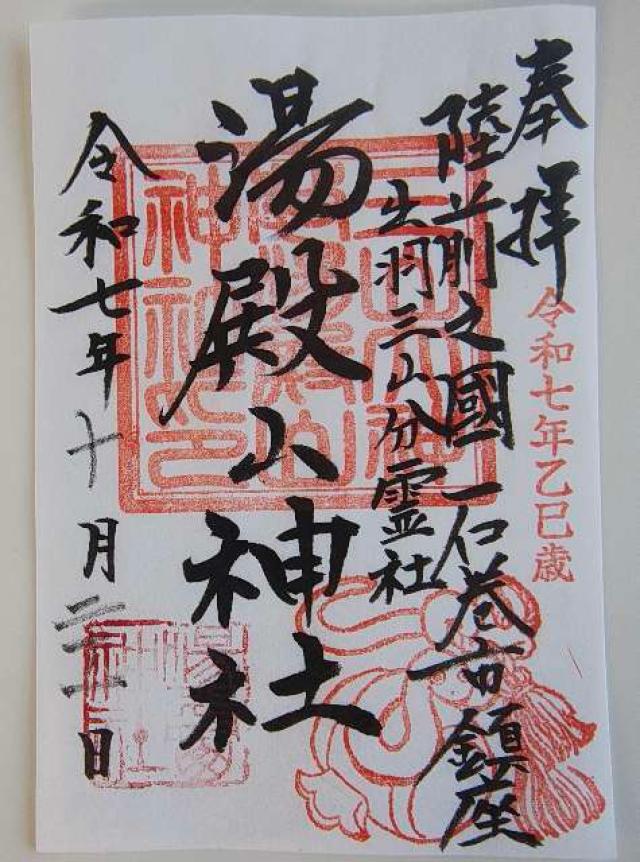 奉拝
令和七年乙巳歳
陸前之國 石巻市鎮座
出羽三山分霊社
湯殿山神社
令和七年十月二十二日